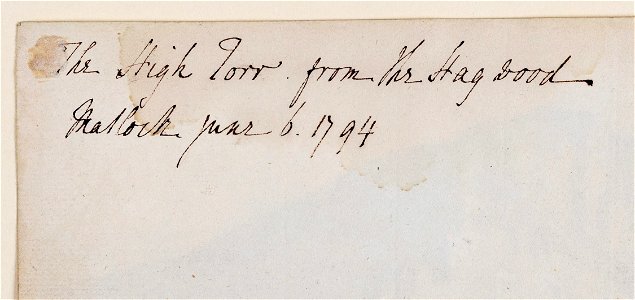 The High Torr. from the Hag wood
Matlock. June 6. 1794